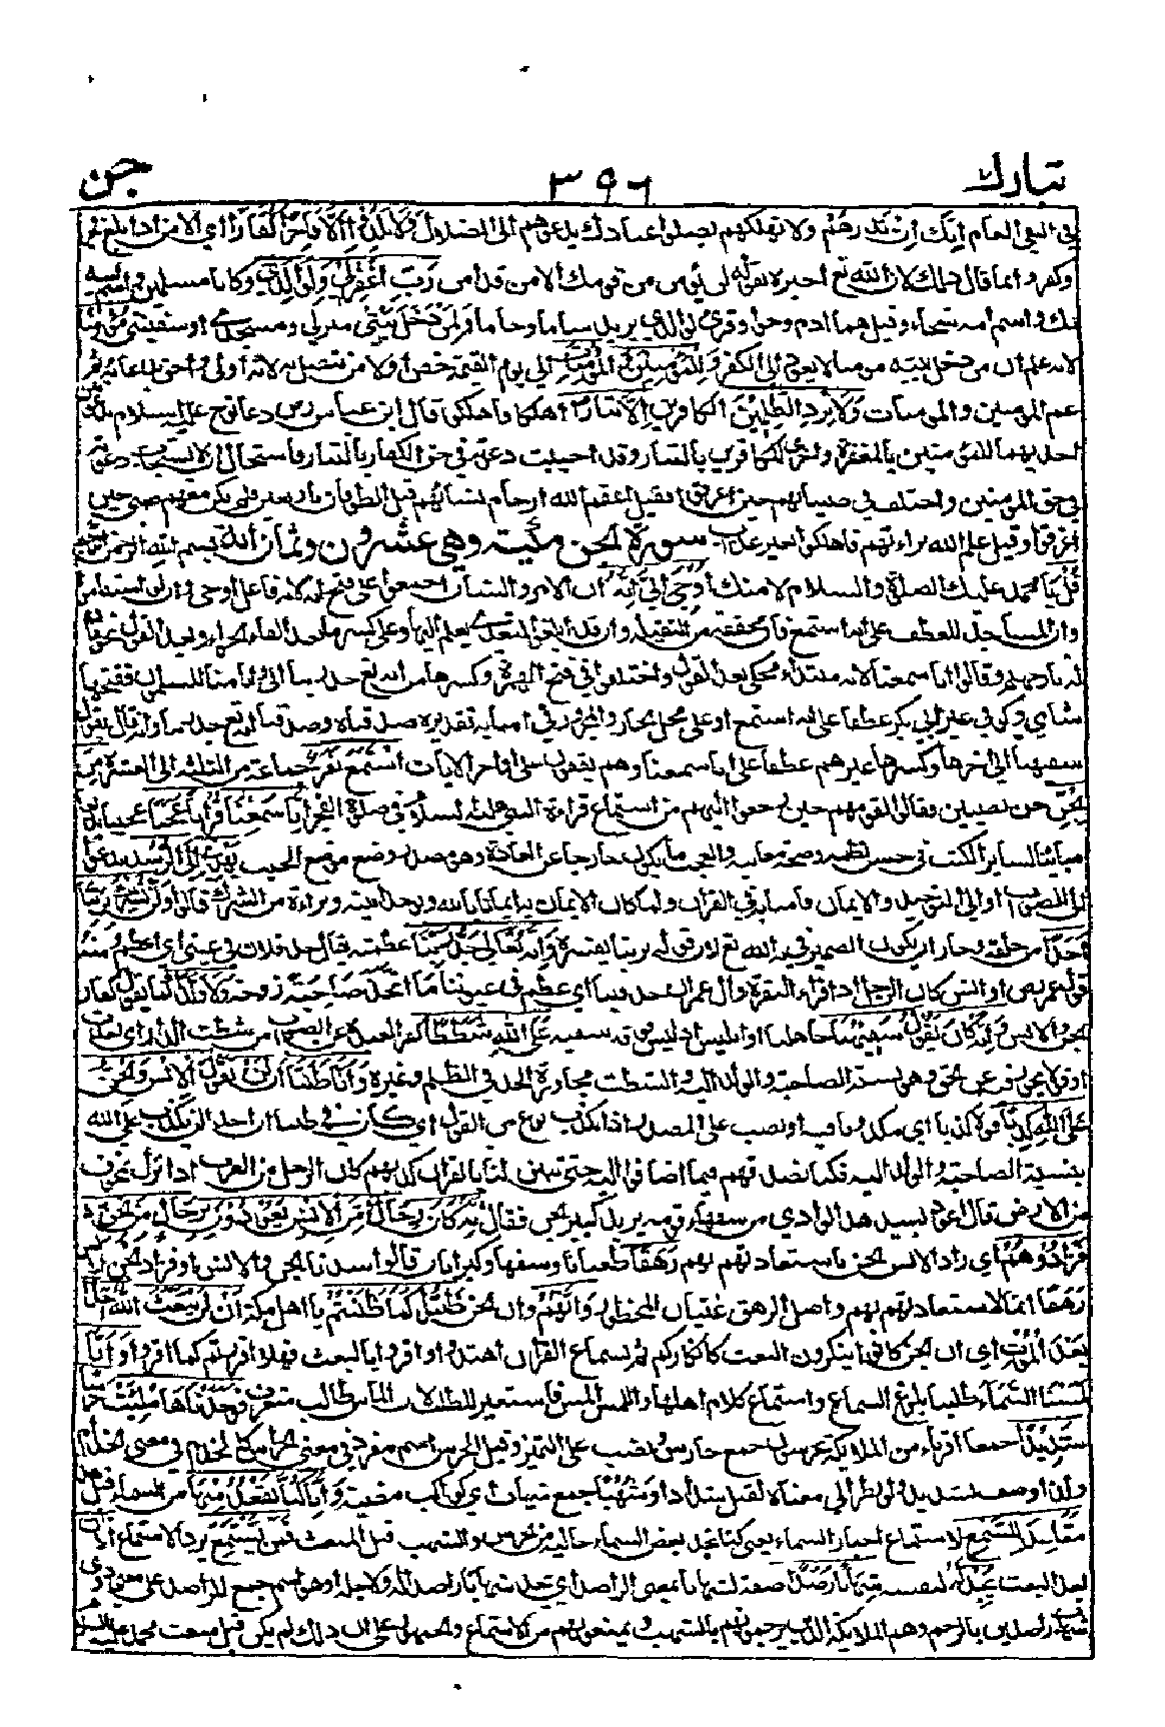 تبارك ٣٩٦ جن
إنك إن تذرهم ولا تهلكهم يضلوا عبادك يدعوهم الى الضلال ولا يلدوا الا فاجرا كفارا اى الا من اذا بلغ فجر
وكفر وانما قال ذلك لان الله تع اخبره بقوله لن يؤمن من قومك الا من قد امن رب اغفر لي ولوالدي وكانا مسلمين واسم ابيه
واسم امه وقيل هما ادم وحوا وقرئ ولولدي يريد ساما وحاما ولمن دخل بيتي منزلي ومسجدي او سفينتي مؤمنا
لانه علم ان من دخل بيته مؤمنا لا يعود الى الكفر وللمؤمنين والمؤمنات الى يوم القيمة خص اولا من يتصل به لانه اولى واحق بدعائه ثم
عم المؤمنين والمؤمنات ولا تزد الظلمين الكافرين الا تبارا اهلاكا فاهلكوا قال ابن عباس رض دعا نوح عليه السلام
احديهما للمؤمنين بالمغفرة واخرى للكافرين بالتبار وقد اجيبت دعوته في حق الكفار بالتبار فاستحال ان لا تستجاب دعوته
في حق المؤمنين واختلف في صبيانهم حين اغرقوا فقيل اعقم الله ارحام نسائهم قبل الطوفان باربعين فلم يكن معهم صبي حين
اغرقوا وقيل علم الله براءتهم فاهلكوا بغير عذاب سورة الجن مكية وهي عشرون وثمان اية بسم الله الرحمن الرحيم
قل يا محمد عليك الصلوة والسلام لامتك أوحي الي انه ان الامر والشان اجمعوا على فتح انه لانه فاعل اوحى وان لو استقاموا
وان المساجد للعطف على انه استمع فان مخففة من الثقيلة وان قد ابلغوا لتعدي يعلم اليها وعلى كسر ما بعد الفاء الجزاء وبعد القول نحو فان
له نار جهنم وقالوا انا سمعنا لانه مبتدأ محكي بعد القول واختلفوا في فتح الهمزة وكسرها من انه تع جد ربنا الى وانا منا المسلمون ففتحها
شامي وكوفي غير ابي بكر عطفا على انه استمع او على محل الجار والمجرور في امنا به تقديره صدقناه وصدقنا انه تع جد ربنا وانه كان يقول
سفيهنا الى اخرها وكسرها غيرهم عطفا على انا سمعنا وهم يقفون على اواخر الايات استمع نفر جماعة من الثلثة الى العشرة من
الجن جن نصيبين فقالوا لقومهم حين رجعوا اليهم من استماع قراءة النبي عليه السلام في صلوة الفجر انا سمعنا قرانا عجبا عجيبا بديعا
مباينا لسائر الكتب في حسن نظمه وصحة معانيه والعجب ما يكون خارجا عن العادة وهو مصدر وضع موضع العجيب يهدي الى الرشد يدعو
الى الصواب او الى التوحيد والايمان فامنا به بالقران ولما كان الايمان به ايمانا بالله وبوحدانيته وبراءة من الشرك قالوا ولن نشرك بربنا
احدا من خلقه وجاز ان يكون الضمير في به الله تع لان قوله بربنا يفسره وانه تعالى جد ربنا عظمته يقال جد فلان في عيني اي عظم ومنه
قول عمر رض او انس كان الرجل اذا قرأ البقرة وال عمران جد فينا اي عظم في عيوننا ما اتخذ صاحبة زوجة ولا ولدا كما يقول كفار
الجن والانس وانه كان يقول سفيهنا جاهلنا او ابليس اذ ليس فوقه سفيه على الله شططا كفرا لبعده عن الصواب من شطت الدار اي بعدت
او قولا يجوز فيه عن الحق وهو نسبة الصاحبة والولد اليه والشطط مجاوزة الحد في الظلم وغيره وانا ظننا ان لن تقول الانس والجن
على الله كذبا قولا كذبا اي مكذوبا فيه او نصب على المصدر اذ الكذب نوع من القول اي كان في ظننا ان احدا لن يكذب على الله
بنسبة الصاحبة والولد اليه فكنا نصدقهم فيما اضافوا اليه حتى تبين لنا بالقران كذبهم كان الرجل من العرب اذا نزل بمخوف
من الارض قال اعوذ بسيد هذا الوادي من سفهاء قومه يريد كبير الجن فقال وانه كان رجال من الانس يعوذون برجال من الجن
فزادوهم اي زاد الانس الجن باستعاذتهم بهم رهقا طغيانا وسفها وكبرا بان قالوا سدنا الجن والانس او فزاد الجن الانس
رهقا اثما لاستعاذتهم بهم واصل الرهق غشيان المحظور وانهم وان الجن ظنوا كما ظننتم يا اهل مكة ان لن يبعث الله احدا
بعد الموت اي ان الجن كانوا ينكرون البعث كانكاركم ثم بسماع القران اهتدوا واقروا بالبعث فهلا اقررتم كما اقروا وانا
لمسنا السماء طلبنا بلوغ السماء واستماع كلام اهلها واللمس المس فاستعير للطلب لان الماس طالب متعرف فوجدناها ملئت حرسا
شديدا جمعا اقوياء من الملائكة يحرسون جمع حارس ونصب على التميز وقيل الحرس اسم مفرد في معنى الحراس كالخدم في معنى الخدام
ولذا وصف بشديد ولو نظر الى معناه لقيل شدادا وشهبا جمع شهاب اي كواكب مضيئة وانا كنا نقعد منها من السماء قبل هذا
مقاعد للسمع لاستماع اخبار السماء يعني كنا نجد بعض السماء خالية من الحرس والشهب قبل المبعث فمن يستمع يرد الاستماع الان
بعد المبعث يجد له لنفسه شهابا رصدا صفة لشهابا بمعنى الراصد اي يجد شهابا راصدا له ولاجله او هو اسم جمع للراصد على معنى ذوي
شهاب راصدين بالرجم وهم الملائكة الذين يرجمونهم بالشهب ويمنعونهم من الاستماع والجمهور على ان ذلك لم يكن قبل مبعث محمد عليه السلام